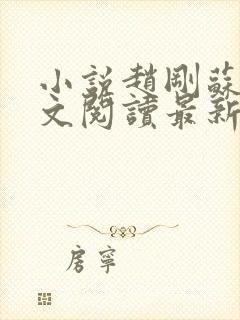 小説趙剛蘇
文閱讀最新
房寧